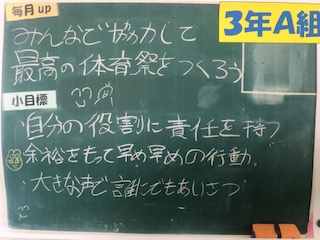 毎月up
3年A組
みんなで協力して
最高の体育祭をつくろう
小目標
・自分の役割に責任を持つ
・余裕をもって早め早めの行動
・大きな声で誰にでもあいさつ